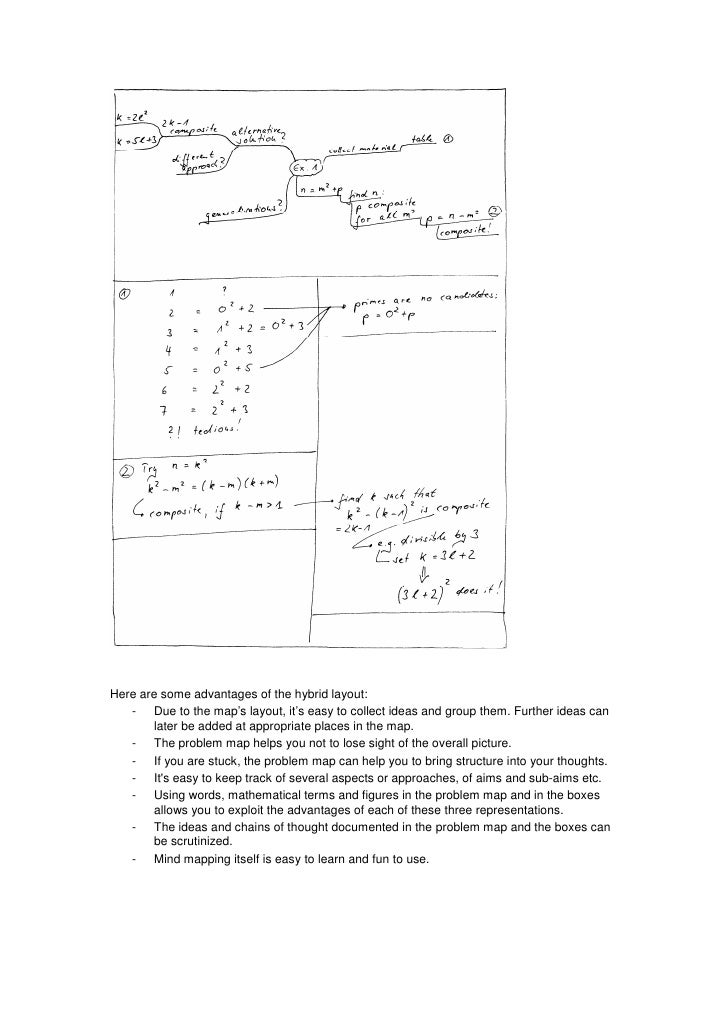 k = 2l²
2k-1
composite
k = 5l+3
alternative
solution?
different
approach?
Ex. 1
collect material
table ①
n = m² + p
find n:
p composite
for all m²
p = n - m² ②
composite!
①
1 ?
2 = 0² + 2
3 = 1² + 2 = 0² + 3
4 = 1² + 3
5 = 0² + 5
6 = 2² + 2
7 = 2² + 3
?! tedious!
primes are no candidates:
p = 0² + p
② Try n = k²
k² - m² = (k-m)(k+m)
composite, if k-m > 1
find k such that
k² - (k-1)² is composite
= 2k-1
e.g. divisible by 3
set k = 3l + 2
⇓
(3l+2)² does it!
Here are some advantages of the hybrid layout:
- Due to the map's layout, it's easy to collect ideas and group them. Further ideas can
later be added at appropriate places in the map.
- The problem map helps you not to lose sight of the overall picture.
- If you are stuck, the problem map can help you to bring structure into your thoughts.
- It's easy to keep track of several aspects or approaches, of aims and sub-aims etc.
- Using words, mathematical terms and figures in the problem map and in the boxes
allows you to exploit the advantages of each of these three representations.
- The ideas and chains of thought documented in the problem map and the boxes can
be scrutinized.
- Mind mapping itself is easy to learn and fun to use.